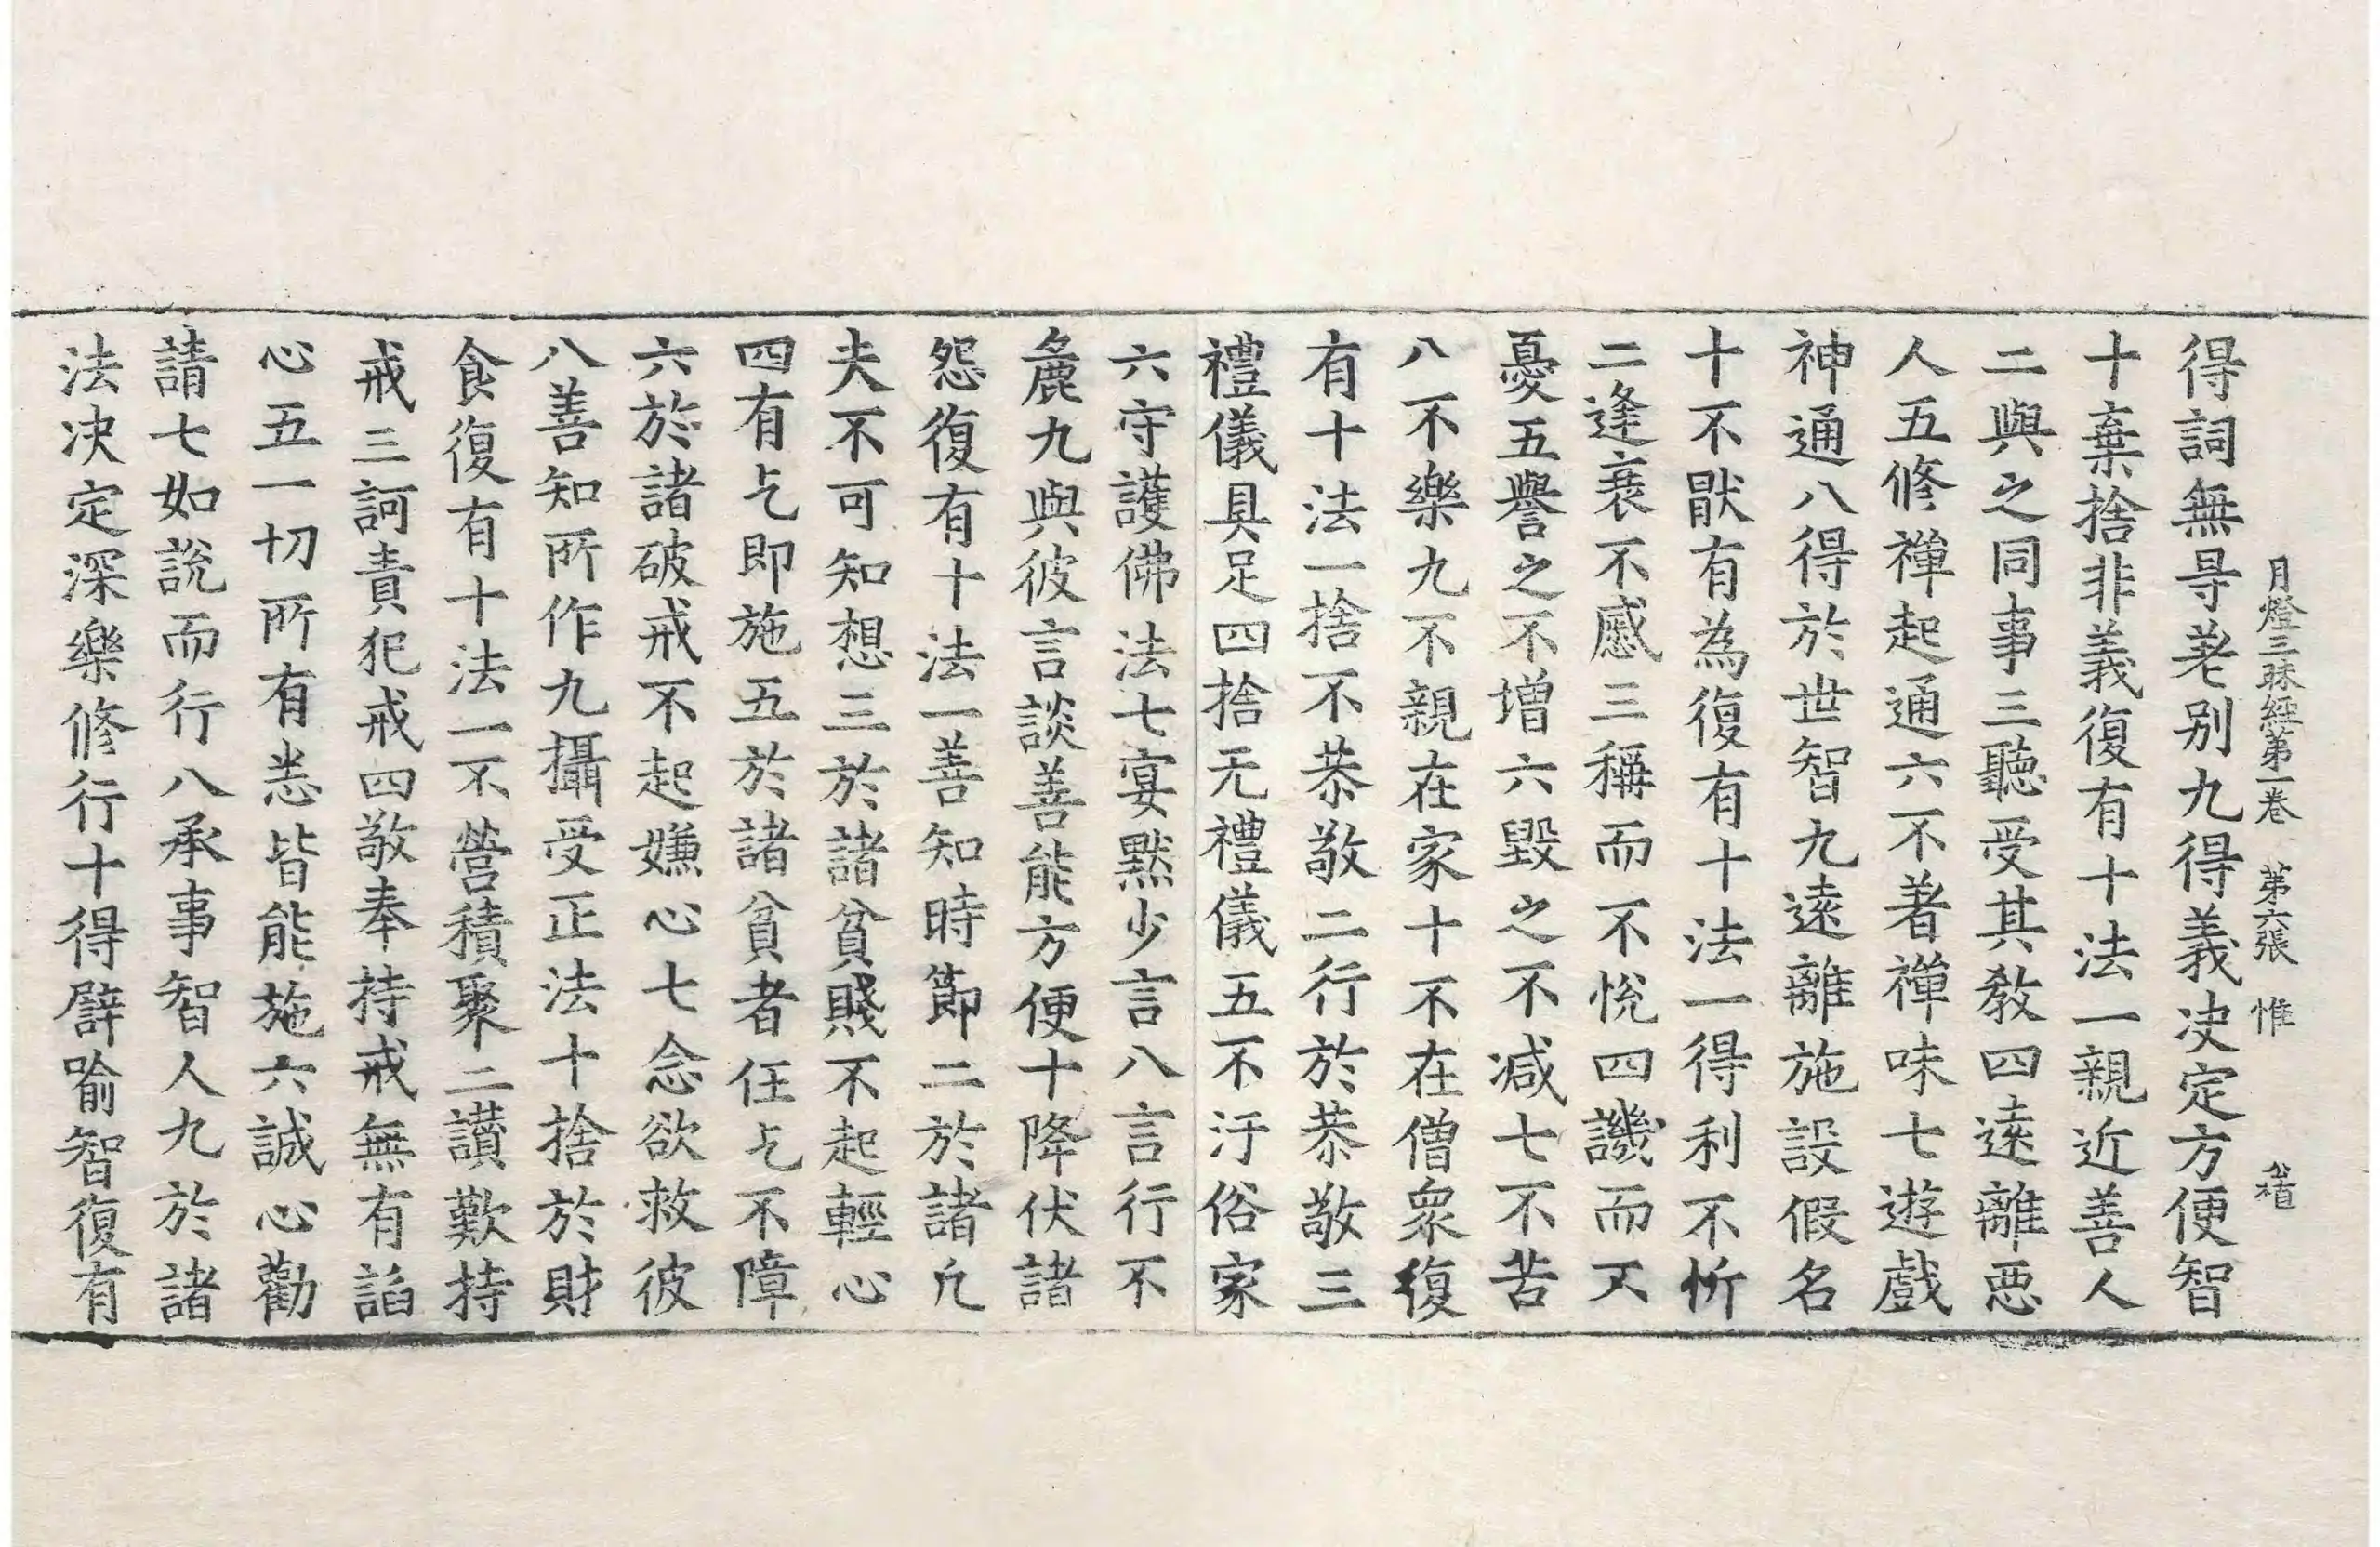 月燈三昧經第一卷　第六張　惟
得詞無㝵差別九得義决定方便智
十棄捨非義復有十法一親近善人
二與之同事三聽受其教四遠離惡
人五修禪起通六不著禪味七遊戲
神通八得於世智九遠離施設假名
十不猒有為復有十法一得利不忻
二逢衰不慼三稱而不悅四譏而不
憂五譽之不增六毀之不減七不苦
八不樂九不親在家十不在僧衆復
有十法一捨不恭敬二行於恭敬三
禮儀具足四捨无禮儀五不汙俗家
六守護佛法七宴黙少言八言行不
麁九與彼言談善能方便十降伏諸
怨復有十法一善知時節二於諸凡
夫不可知想三於諸貧賤不起輕心
四有乞即施五於諸貧者任乞不障
六於諸破戒不起嫌心七念欲救彼
八善知所作九攝受正法十捨於財
食復有十法一不營積聚二讃歎持
戒三訶責犯戒四敬奉持戒無有諂
心五一切所有悉皆能施六誠心勸
請七如說而行八承事智人九於諸
法决定深樂修行十得譬喻智復有